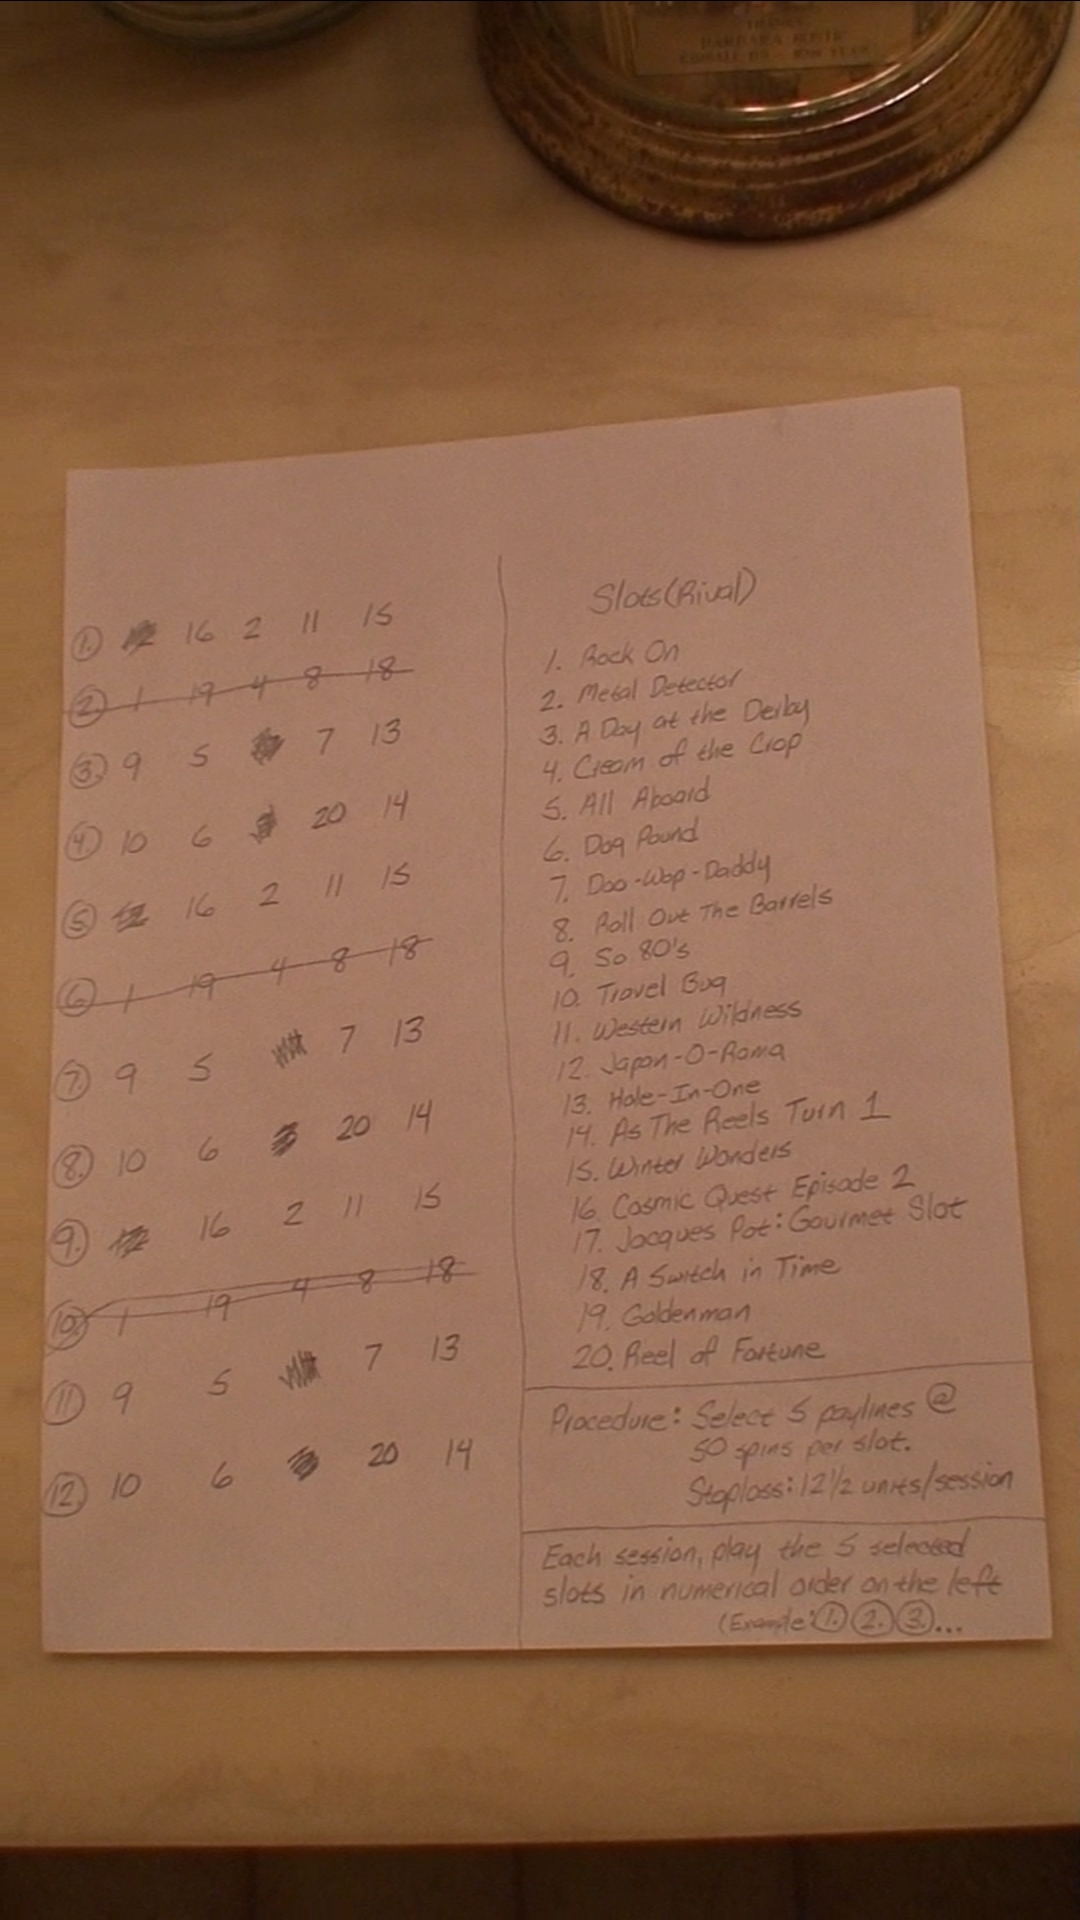 BARBARA
1. 16 2 11 15
2. 1 19 4 8 18
3. 9 5 7 13
4. 10 6 20 14
5. 16 2 11 15
6. 1 19 4 8 18
7. 9 5 7 13
8. 10 6 20 14
9. 16 2 11 15
10. 1 19 4 8 18
11. 9 5 7 13
12. 10 6 20 14
Slots(Rival)
1. Rock On
2. Metal Detector
3. A Day at the Derby
4. Cream of the Crop
5. All Aboard
6. Dog Pound
7. Doo-Wop-Daddy
8. Roll Out The Barrels
9. So 80's
10. Travel Bug
11. Western Wildness
12. Japan-O-Rama
13. Hole-In-One
14. As The Reels Turn 1
15. Winter Wonders
16. Cosmic Quest Episode 2
17. Jacques Pot: Gourmet Slot
18. A Switch in Time
19. Goldenman
20. Reel of Fortune
Procedure: Select 5 paylines @
50 spins per slot.
Stoploss: 12 1/2 units/session
Each session, play the 5 selected
slots in numerical order on the left
(Example: 1. 2. 3. ...